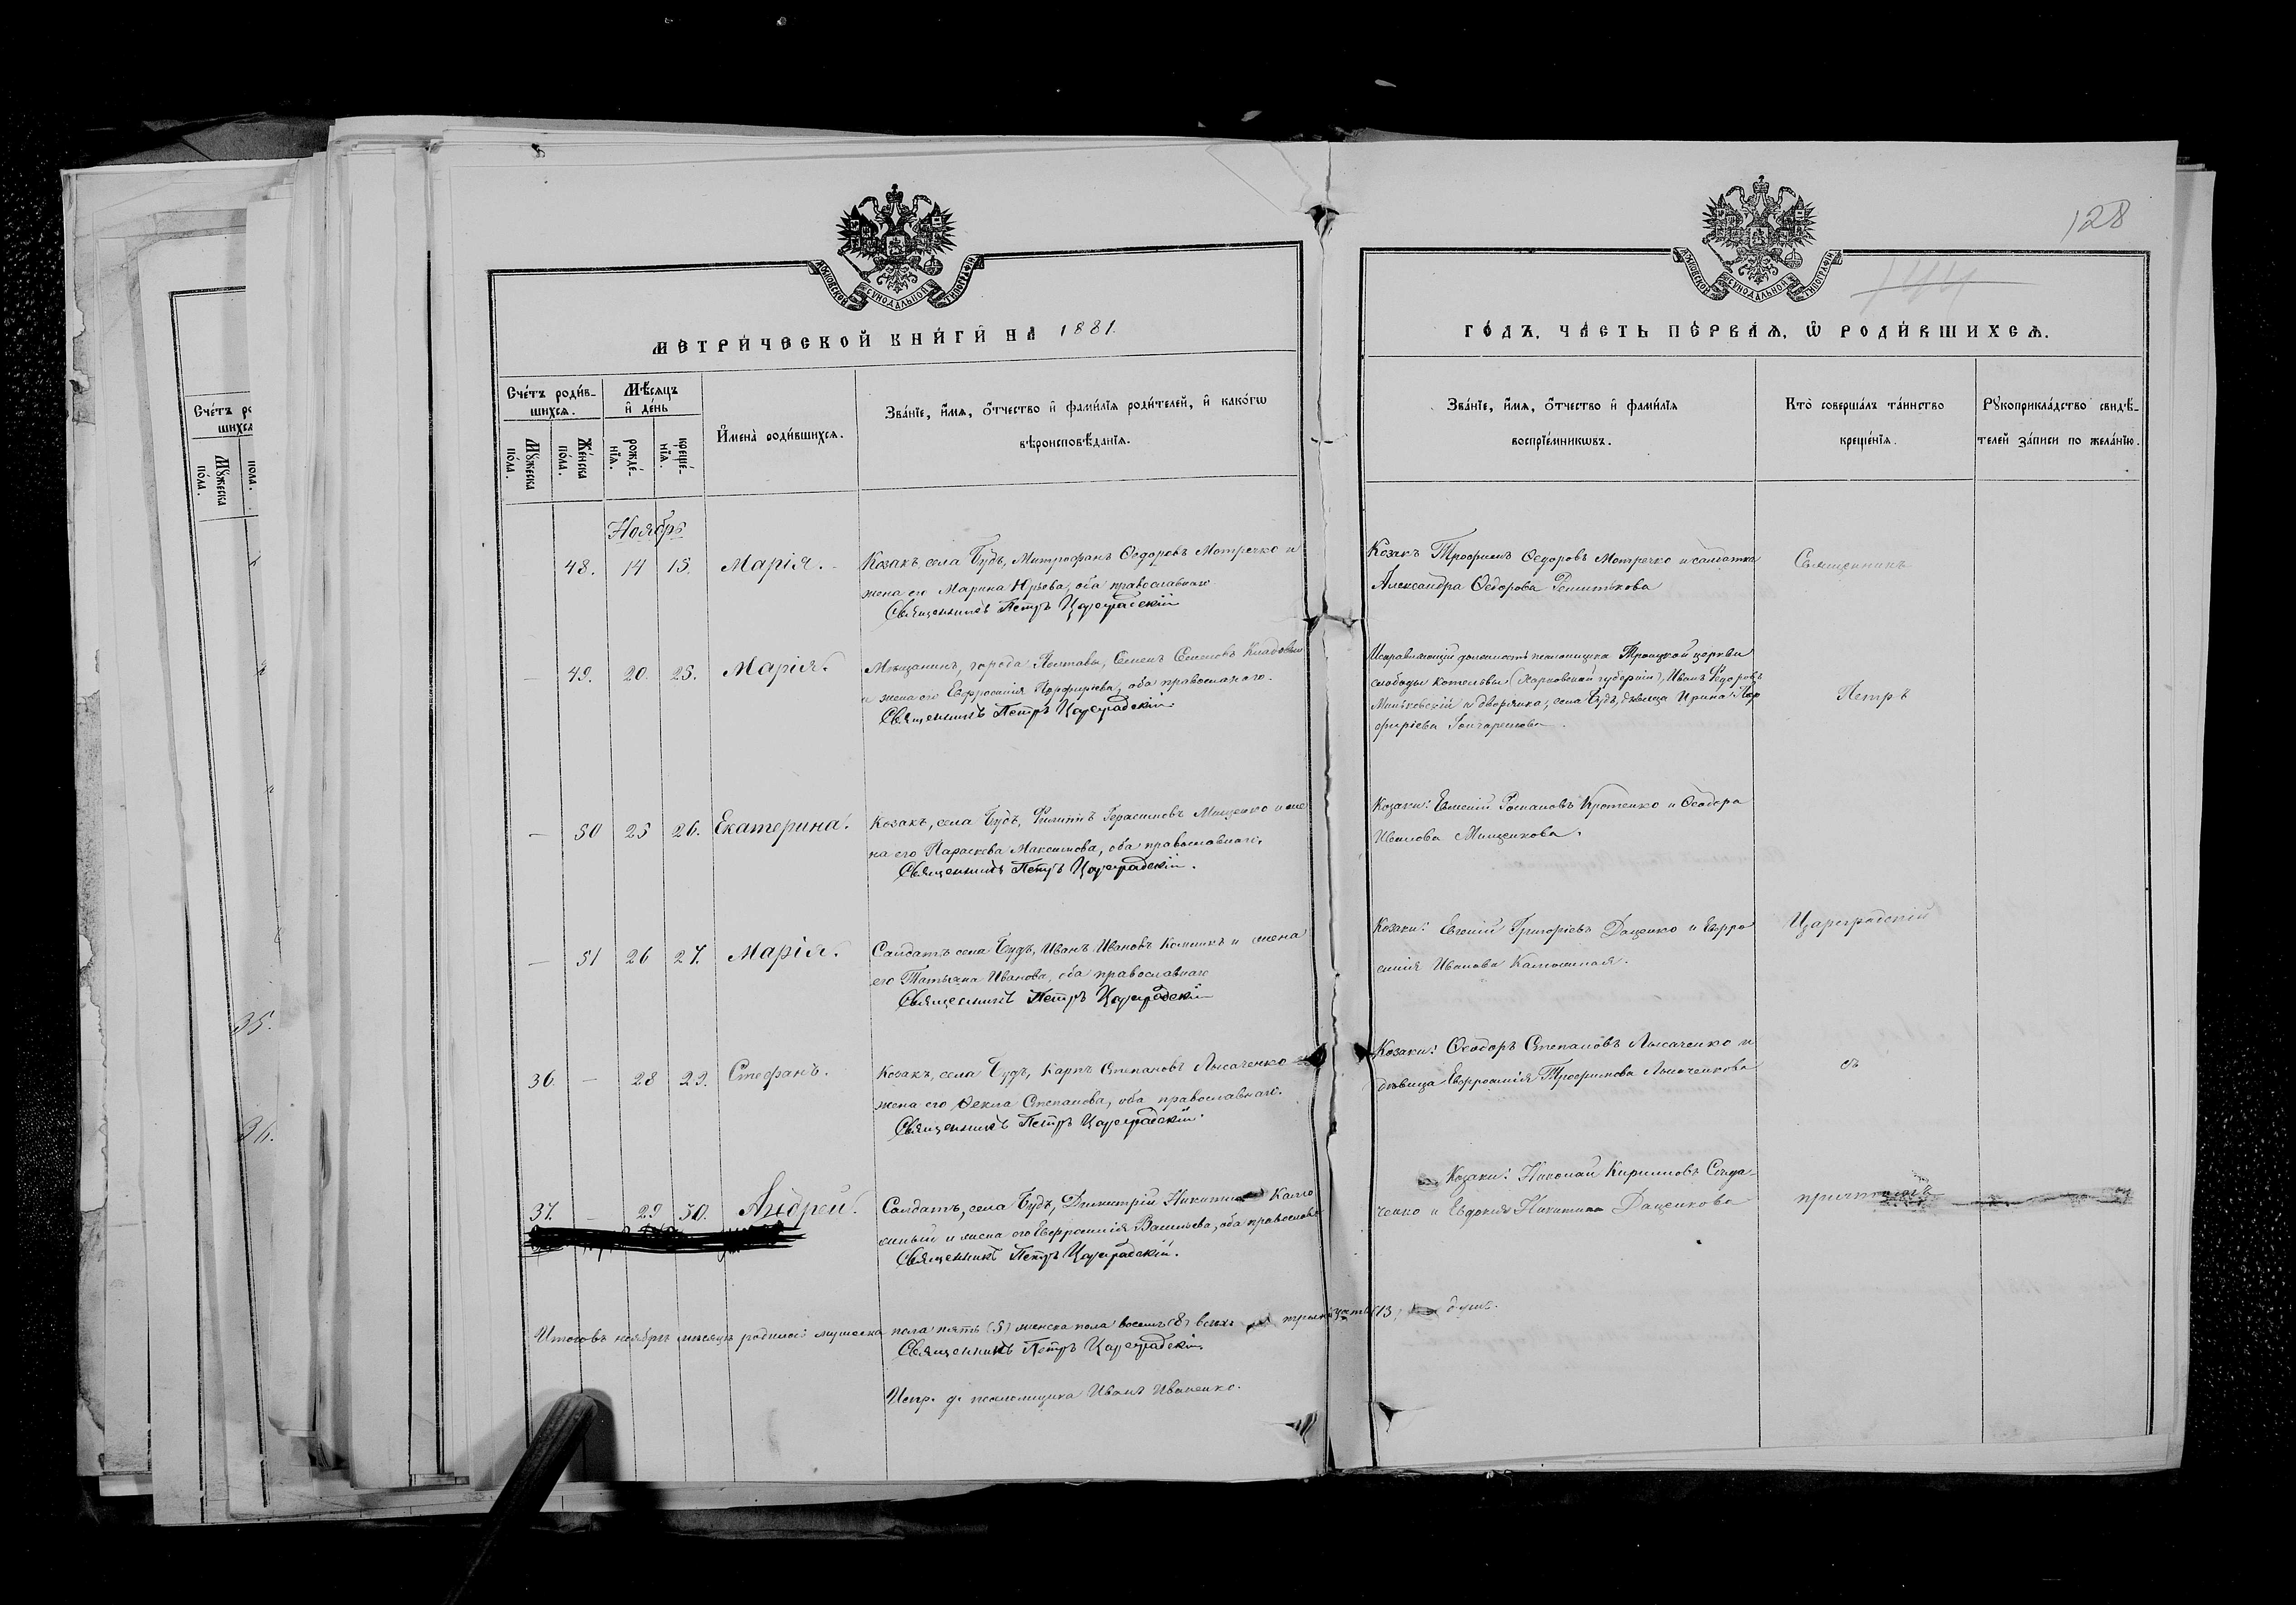 128
144
МОСКОВСКОЙ СѴНОДАЛЬНОЙ ТИПОГРАФІИ
МОСКОВСКОЙ СѴНОДАЛЬНОЙ ТИПОГРАФІИ
МЕТРИ́ЧЕСКОЙ КНИ́ГИ НА 1881.
ГО́ДЪ, ЧА́СТЬ ПЕ́РВАЯ, Ѡ РОДИ́ВШИХСЯ.
Сче́тъ роди́в-
шихся.
Мѣсяцъ
и де́нь
Имена̀ роди́вшихся.
Зва́нїе, и́мя, о́тчество и фами́лїя роди́телей, и како́гѡ
вѣроисповѣ́данїя.
Мꙋ́жеска по́ла.
Же́нска по́ла.
рожде́-
нїя.
креще́-
нїя.
Зва́нїе, и́мя, о́тчество и фами́лїя
воспрїе́мникωвъ.
Кто̀ соверша́лъ та́инство
креще́нїя.
Рꙋкоприкла́дство свидѣ́-
телей за́писи по жела́нїю.
Ноябрь
— 48. 14 15. Марія. Козакъ, села Будъ, Митрофанъ Ѳедоровъ Мотречко и
жена его Марина Юрьева, оба православнаго
Священникъ Петръ Цареградскій
Козакъ Трофимъ Ѳедоровъ Мотречко и солдатка
Александра Ѳедорова
Священникъ
— 49. 20. 25. Марія. Мѣщанинъ, города Полтавы, Семенъ Семеновъ
и жена его Евфросинія Порфирьева, оба православнаго.
Священникъ Петръ Цареградскій
Исправляющій должность псаломщика Троицкой церкви
слободы Котельвы (Харьковской губерніи), Иванъ Ѳедоровъ
и дворянка, села Будъ, дѣвица Ирина Пор
фиріева Гончаренкова.
Петръ
— 50 25 26. Екатерина. Козакъ, села Будъ, Филиппъ Герасимовъ Мищенко и же
на его Параскева Максимова, оба православнаго.
Священникъ Петръ Цареградскій.
Козаки: Евменій Романовъ Кротенко и Ѳеодора
Иванова Мищенкова.
— 51 26 27. Марія. Солдатъ села Будъ, Иванъ Ивановъ и жена
его Татьяна Иванова, оба православнаго
Священникъ Петръ Цареградскій
Козаки: Евгеній Григорьевъ Даценко и Евфро
синія Иванова
Цареградскій
36. — 28 29. Стефанъ. Козакъ, села Будъ, Карпъ Степановъ Лысаченко и
жена его Ѳекла Степанова, оба православнаго.
Священникъ Петръ Цареградскій.
Козаки: Ѳеодоръ Степановъ Лысаченко и
дѣвица Евфросинія Трофимова Лысаченкова
съ
37. — 29 30. Андрей. Солдатъ, села Будъ, Димитрій Никитинъ Калю
жный и жена его Евфросинія Васильева, оба православн
Священникъ Петръ Цареградскій.
Козаки: Николай Кирилловъ
ченко и Евдокія Никитина Даценкова
причтомъ
Итого въ ноябрѣ мѣсяцѣ родилось мужеска пола пять (5) женска пола восемь (8) всѣхъ тринадцать (13) душъ.
Священникъ Петръ Цареградскій
Испр. д. псаломщика Иванъ Иваненко.
Сче́тъ ро
шихся
Мꙋ́жеска
по́ла.
по́ла.
35.
36.